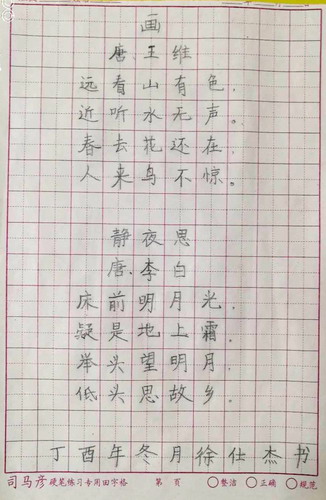 画
唐.王维
远看山有色.
近听水无声。
春去花还在.
人来鸟不惊。
静夜思
唐.李白
床前明月光.
疑是地上霜.
举头望明月.
低头思故乡.
丁酉年冬月徐仕杰书
司马彦硬笔练习专用田字格 第 页 ○整洁 ○正确 ○规范